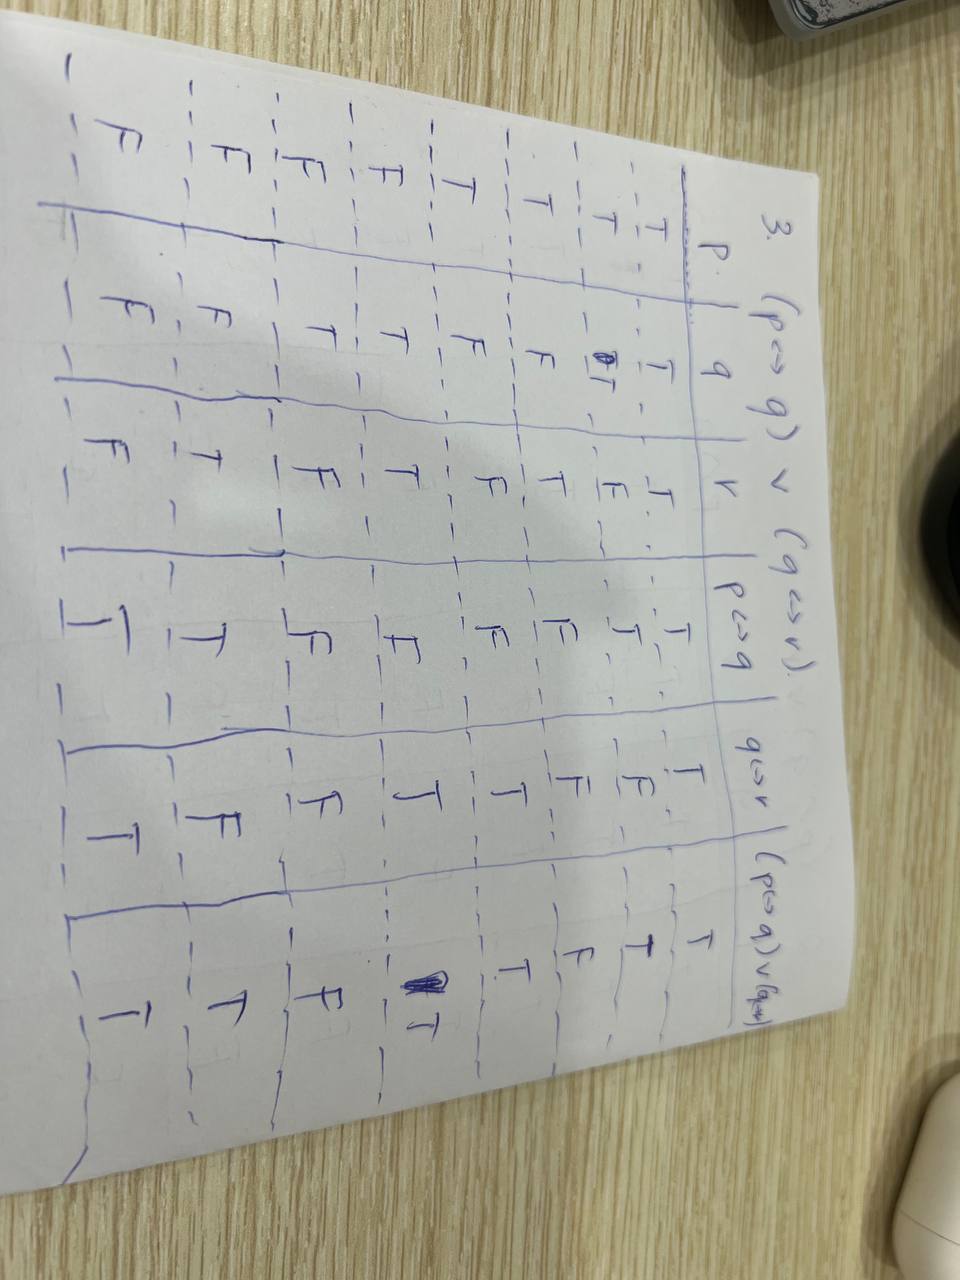 3. (p↔q) ∨ (q↔r).
p. q r p↔q q↔r (p↔q)∨(q↔r)
T T T T T T
T T F T F T
T F T F F F
T F F F T T.
F T T F T T
F T F F F F
F F T T F T
F F F T T T